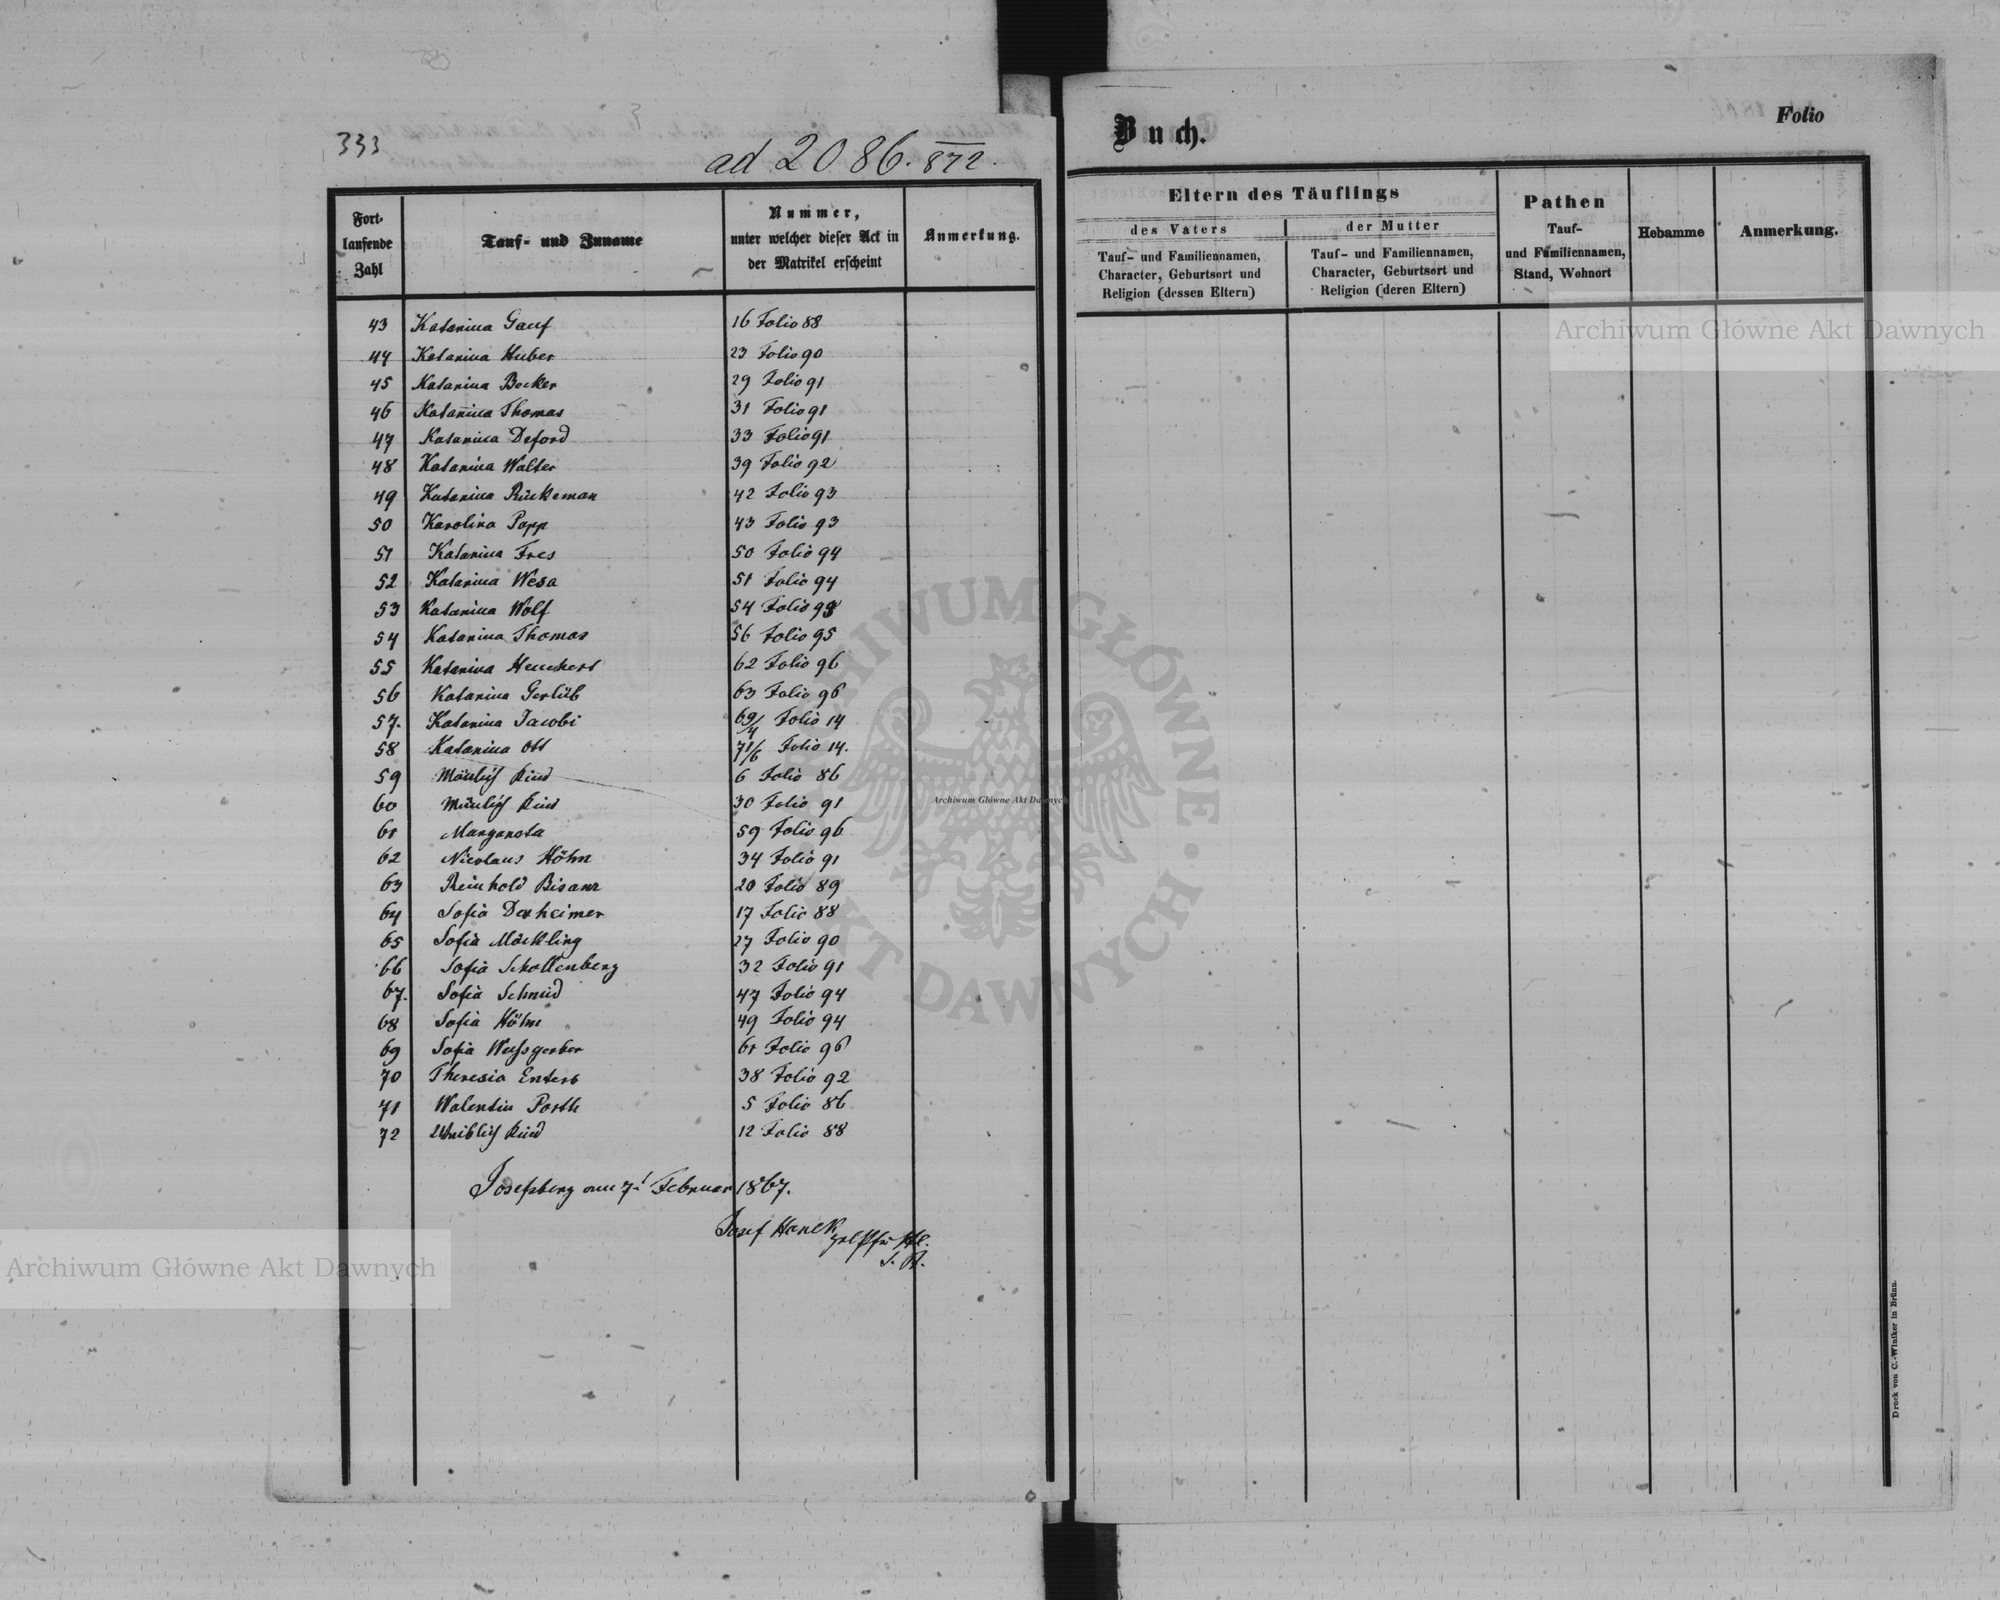 333
ad 2086. 872.
Fort-
laufende
Zahl
Tauf- und Zuname
Nummer,
unter welcher dieser Act in
der Matrikel erscheint
Anmerkung.
43 Katarina Gauf 16 Folio 88
44 Katarina Huber 23 Folio 90
45 Katarina Becker 29 Folio 91
46 Katarina Thomas 31 Folio 91
47 Katarina Deford 33 Folio 91
48 Katarina Walter 39 Folio 92
49 Katarina Rückeman 42 Folio 93
50 Karolina Popp 43 Folio 93
51 Katarina Fres 50 Folio 94
52 Katarina Wesa 51 Folio 94
53 Katarina Wolf 54 Folio
54 Katarina Thomas 56 Folio 95
55 Katarina Heuchert 62 Folio 96
56 Katarina Gerlüb 63 Folio 96
57. Katarina Jacobi 69/4 Folio 14
58 Katarina Ott 71/6 Folio 14.
59 Mänlich Kind 6 Folio 86
60 Mänlich Kind 30 Folio 91
61 Margareta 59 Folio 96
62 Nicolaus Höhn 34 Folio 91
63 Reinhold Bisanz 20 Folio 89
64 Sofia Dexheimer 17 Folio 88
65 Sofia Möckling 27 Folio 90
66 Sofia Schollenberg 32 Folio 91
67. Sofia Schmid 47 Folio 94
68 Sofia Höhn 49 Folio 94
69 Sofia Weissgerber 61 Folio 96
70 Theresia Enders 38 Folio 92
71 Walentin Porth 5 Folio 86
72 Weiblich Kind 12 Folio 88
Josefsberg am 7 Februar 1867.
Josef Hanek
Buch.
Folio
Eltern des Täuflings
des Vaters
der Mutter
Tauf- und Familiennamen,
Character, Geburtsort und
Religion (dessen Eltern)
Tauf- und Familiennamen,
Character, Geburtsort und
Religion (deren Eltern)
Pathen
Tauf-
und Familiennamen,
Stand, Wohnort
Hebamme
Anmerkung.
Druck von C. Winiker in Brünn.
Archiwum Główne Akt Dawnych
Archiwum Główne Akt Dawnych
Archiwum Główne Akt Dawnych
ARCHIWUM GŁÓWNE · AKT DAWNYCH ·